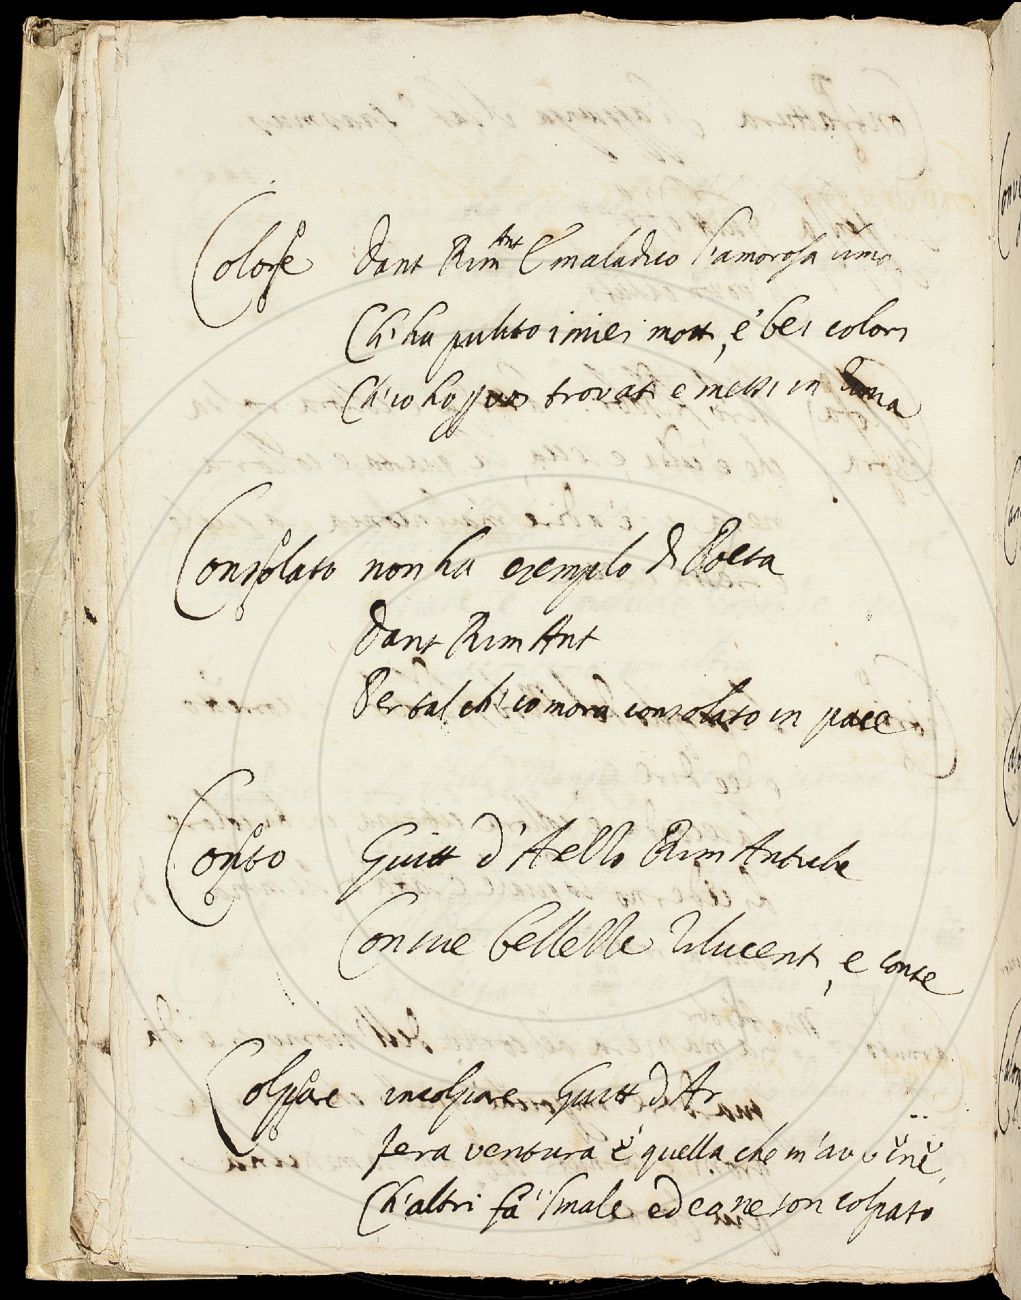 Colore Dant Rim Ant E maladico l'amorosa lima
Ch'ha pulito i miei mott, e' bei colori
Ch'io ho per trovati e messi in rima
Consolato non ha esemplo di Poeta
Dant Rim Ant
Per tal ch'io mora consolato in pace
Conto Guitt d'Arezzo Rim Antiche
Con sue bellezze rilucenti, e conte
Colpare incolpare Guitt d'Ar
fera ventura è quella che m'avvene,
Ch'altri fa 'l male ed ea ne son colpato